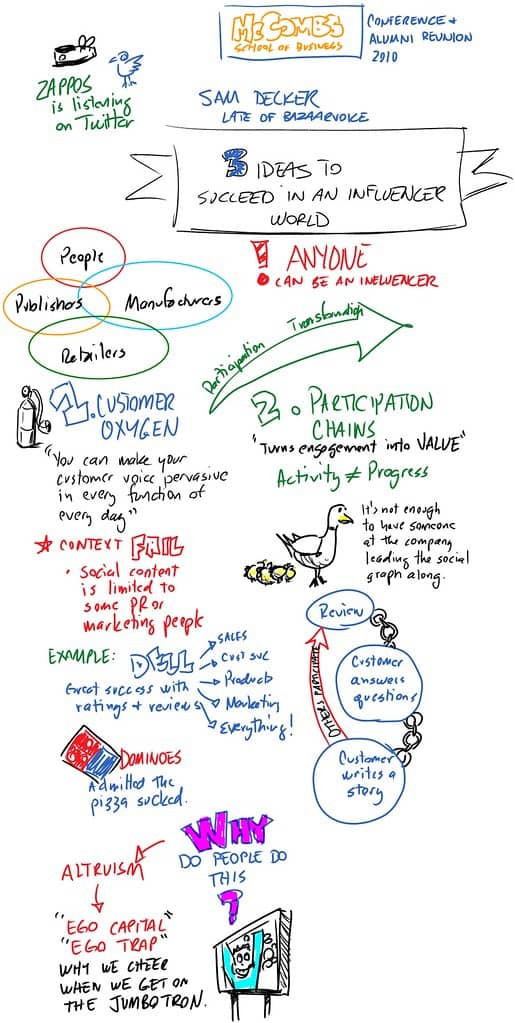 McCOMBS
SCHOOL OF BUSINESS
CONFERENCE +
ALUMNI REUNION
2010
ZAPPOS
is listening
on Twitter
SAM DECKER
LATE OF BAZAARVOICE
3 IDEAS TO
SUCCEED IN AN INFLUENCER
WORLD
People
Publishers
Manufacturers
Retailers
! ANYONE
CAN BE AN INFLUENCER
Participation
Transformation
1. CUSTOMER
OXYGEN
"You can make your
customer voice pervasive
in every function of
every day"
CONTEXT FAIL
• Social content
is limited to
some PR or
marketing people
EXAMPLE: DELL
Great success with
ratings + reviews
SALES
Cust svc
Products
Marketing
Everything!
DOMINOES
Admitted the
pizza sucked.
2. PARTICIPATION
CHAINS
"Turns engagement into VALUE"
Activity ≠ Progress
It's not enough
to have someone
at the company
leading the social
graph along.
Review
Customer
answers
questions
OTHERS PARTICIPATE
Customer
writes a
story
WHY
DO PEOPLE DO
THIS
?
ALTRUISM
"EGO CAPITAL"
"EGO TRAP"
WHY WE CHEER
WHEN WE GET ON
THE JUMBOTRON.